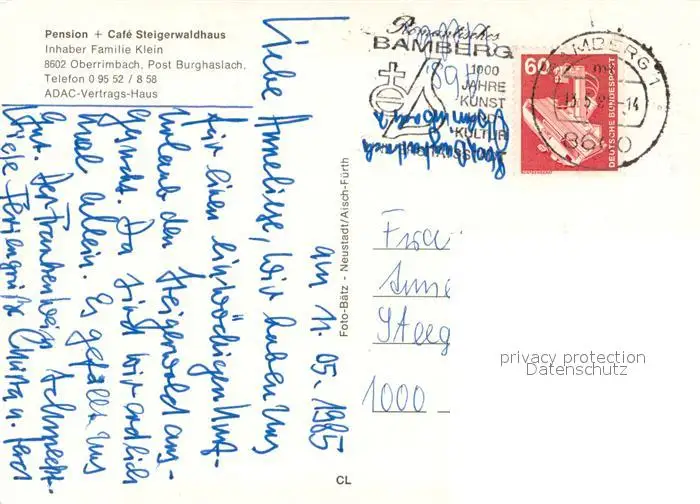 Pension + Café Steigerwaldhaus
Inhaber Familie Klein
8602 Oberrimbach, Post Burghaslach.
Telefon 0 95 52 / 8 58
ADAC-Vertrags-Haus
am 11. 05. 1985
Liebe Anneliese, wir haben uns
für einen einwöchigen Kurz-
urlaub den Steigerwald aus-
gesucht. Da sind wir endlich
mal allein. Es gefällt uns
gut. Der Frankenwein schmeckt.
Viele Feriengrüße Christa u. Gerd
Foto-Bätz - Neustadt/Aisch-Fürth
CL
Romantisches
BAMBERG
1000
JAHRE
KUNST
KULTUR
60
DEUTSCHE BUNDESPOST
BAMBERG 1
-14
8600
Frau
Anne
Steeg
1000
privacy protection
Datenschutz